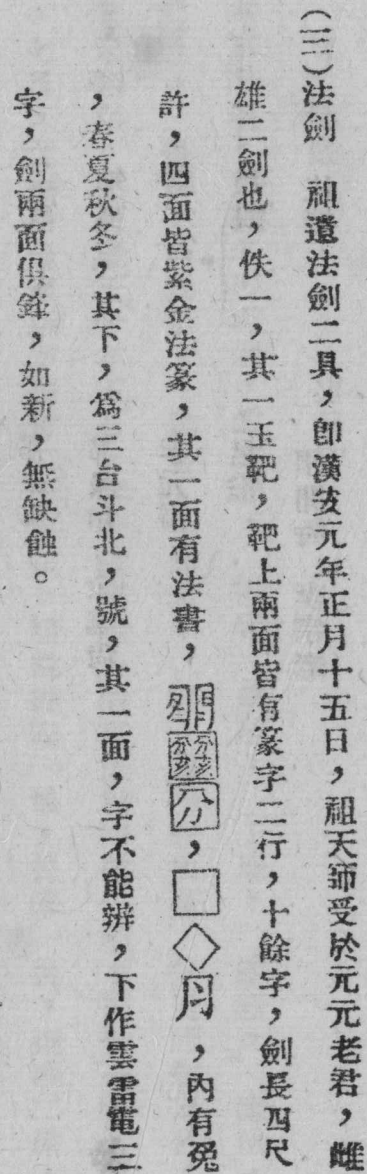 (三)法劍　祖遺法劍二具，卽漢安元年正月十五日，祖天師受於元元老君，雌
雄二劍也，佚一，其一玉靶，靶上兩面皆有篆字二行，十餘字，劍長四尺
許，四面皆紫金法篆，其一面有法書，，□◇月，內有兔
，春夏秋冬，其下，爲三台斗北，號，其一面，字不能辨，下作雲雷電三
字，劍兩面俱鋒，如新，無缺蝕。